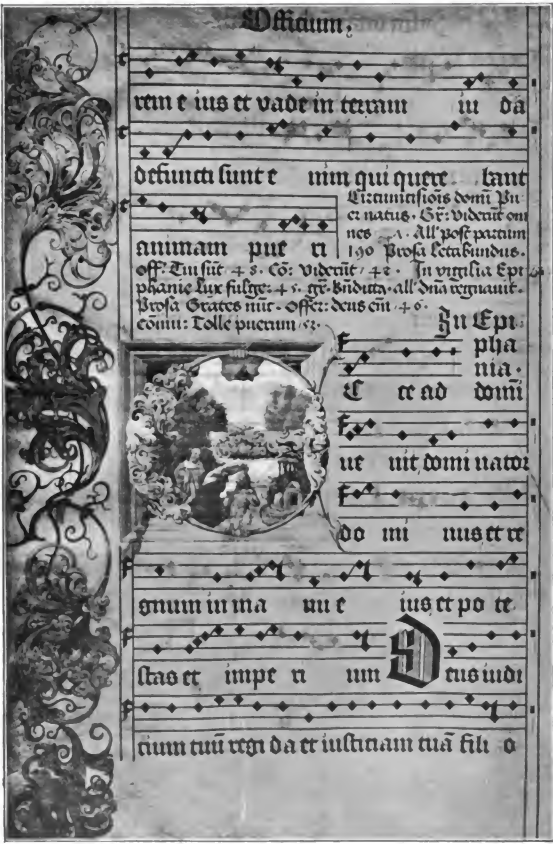 Officium,
rem e ius et vade in terram iu da
defuncti sunt e nim qui quere bant
animam pue ri
Circumcisiōis domī Pu
er natus · Gr: viderūt om
nes · All' post partum
190 Prosa letabundus ·
off: Tui sūt · 48 · Cō: viderūt · 42 · In vigilia Epi
phanie Lux fulge: 45 · gr: Bñdicta · all: dn̄s regnavit ·
Prosa Grates nūc · Offer: deus em̄ · 46 ·
cōmu: Tolle puerum 52 ·
In Epi
pha
nia ·
E cce ad domī
ue nit dominator
do mi nus et re
gnum in ma nu e ius et po te
stas et impe ri um Deus iudi
cium tuū regi da et iusticiam tuā fili o